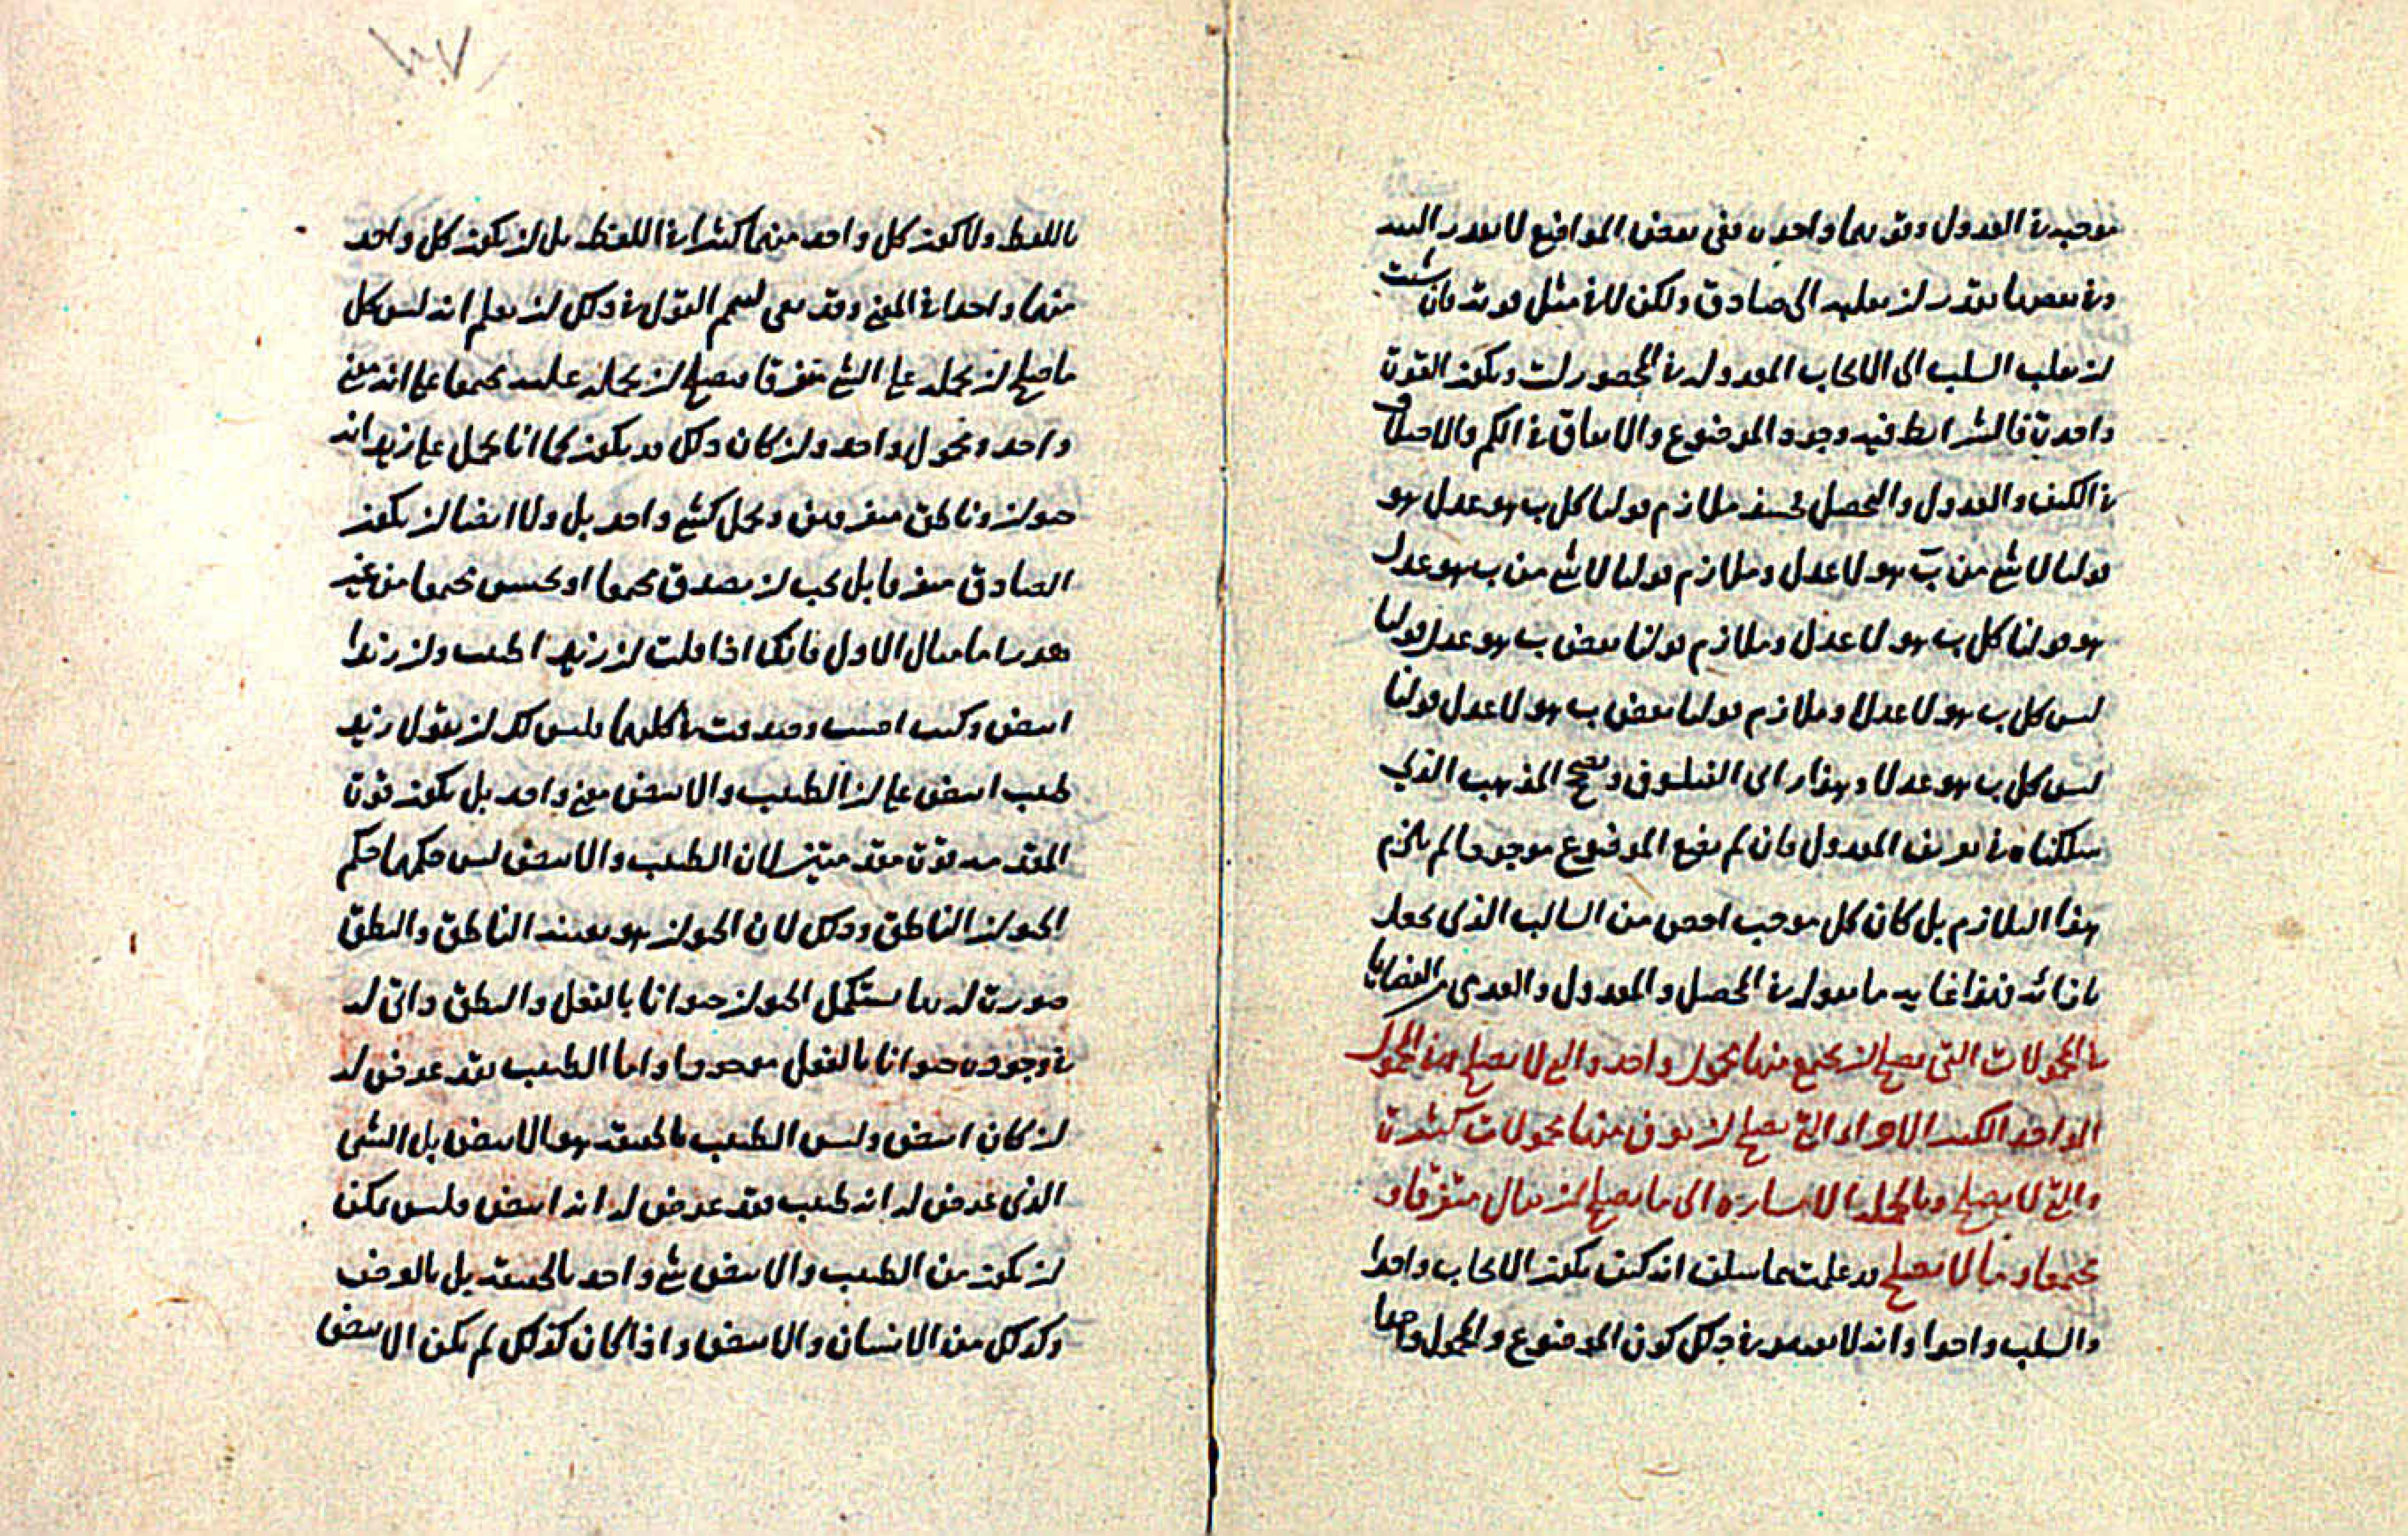 موجبة في العدول وقد بما واحدة ففي بعض المواضع لا يقدر البتة
وفي بعضها يقدر لن يقلبه الى صادق ولكن لا في مثل قوته فان شئت
لن يقلب السلب الى الايجاب المعدول له في المحصورات ويكون القوة
واحدة فالشرايط فيه وجود الموضوع والاتفاق في الكم والاختلاف
في الكيف والعدول والتحصيل فحينئذ ملازم قولنا كل ب هو عدل هو
قولنا لا شئ من ب هو لا عدل وملازم قولنا لا شئ من ب هو عدل
هو قولنا كل ب هو لا عدل وملازم قولنا بعض ب هو عدل قولنا
ليس كل ب هو لا عدلا وملازم قولنا بعض ب هو لا عدل قولنا
ليس كل ب هو عدلا وهذا راى الفيلسوف وتصحح المذهب الذي
سلكناه في تعريف المعدول فان لم يضع الموضوع موجودا لم يلزم
هذا التلازم بل كان كل موجب اخص من السالب الذى يجعل
بازائه فهذا غاية ما نقوله في المحصل والمعدول والعدمى من القضايا
في المحمولات التى يصلح لن يجمع منها محمول واحد والتي لا يصلح وفي المحمول
الواحد الكثير الاجزاء التي يصلح لن يفرق منها محمولات كثيرة
والتي لا يصلح وبالجملة الاشارة الى ما يصلح لن يقال متفرقا و
مجتمعا وما لا يصلح قد علمت مما سلف انه كيف يكون الايجاب واحدا
والسلب واحدا وانه لا يعتبر في ذلك كون الموضوع والمحمول واحدا
باللفظ ولا كون كل واحد منهما كثيرا في اللفظ بل لن يكون كل واحد
منهما واحدا في المعنى وقد بقى لتتميم القول في ذلك لن يعلم انه ليس كل
ما صلح لن يحمله على الشئ متفرقا يصلح لن يحمله عليه مجتمعا على انه معنى
واحد ومحمول واحد ولن كان ذلك قد يكون كما انا نحمل على زيد انه
حيوان وناطق متفرقين ونحمل كشئ واحد بل ولا ايضا لن يكون
الصادق متفرقا بل يجب لن يصدق مجتمعا او يحسن مجتمعا من غير
هذر اما مثال الاول فانك اذا قلت لن زيدا طبيب ولن زيدا
ابيض وكنت اصبت وصدقت في كليهما فليس لك لن تقول زيد
طبيب ابيض على لن الطبيب والابيض معنى واحد بل يكون قوة
المقيد منه قوة مقيد متميز لان الطبيب والابيض ليس حكمهما حكم
الحيوان الناطق وذلك لان الحيوان هو بعينه الناطق والنطق
صورة له بها يستكمل الحيوان حيوانا بالفعل والنطق داتى له
في وجوده حيوانا بالفعل موجودا واما الطبيب فقد عرض له
لن كان ابيض وليس الطبيب بالحقيقة هو الابيض بل الشئ
الذي عرض له انه طبيب فقد عرض له انه ابيض فليس يمكن
لن يكون من الطبيب والابيض شئ واحد بالحقيقة بل بالعرض
وكذلك من الانسان والابيض واذا كان كذلك لم يكن الابيض